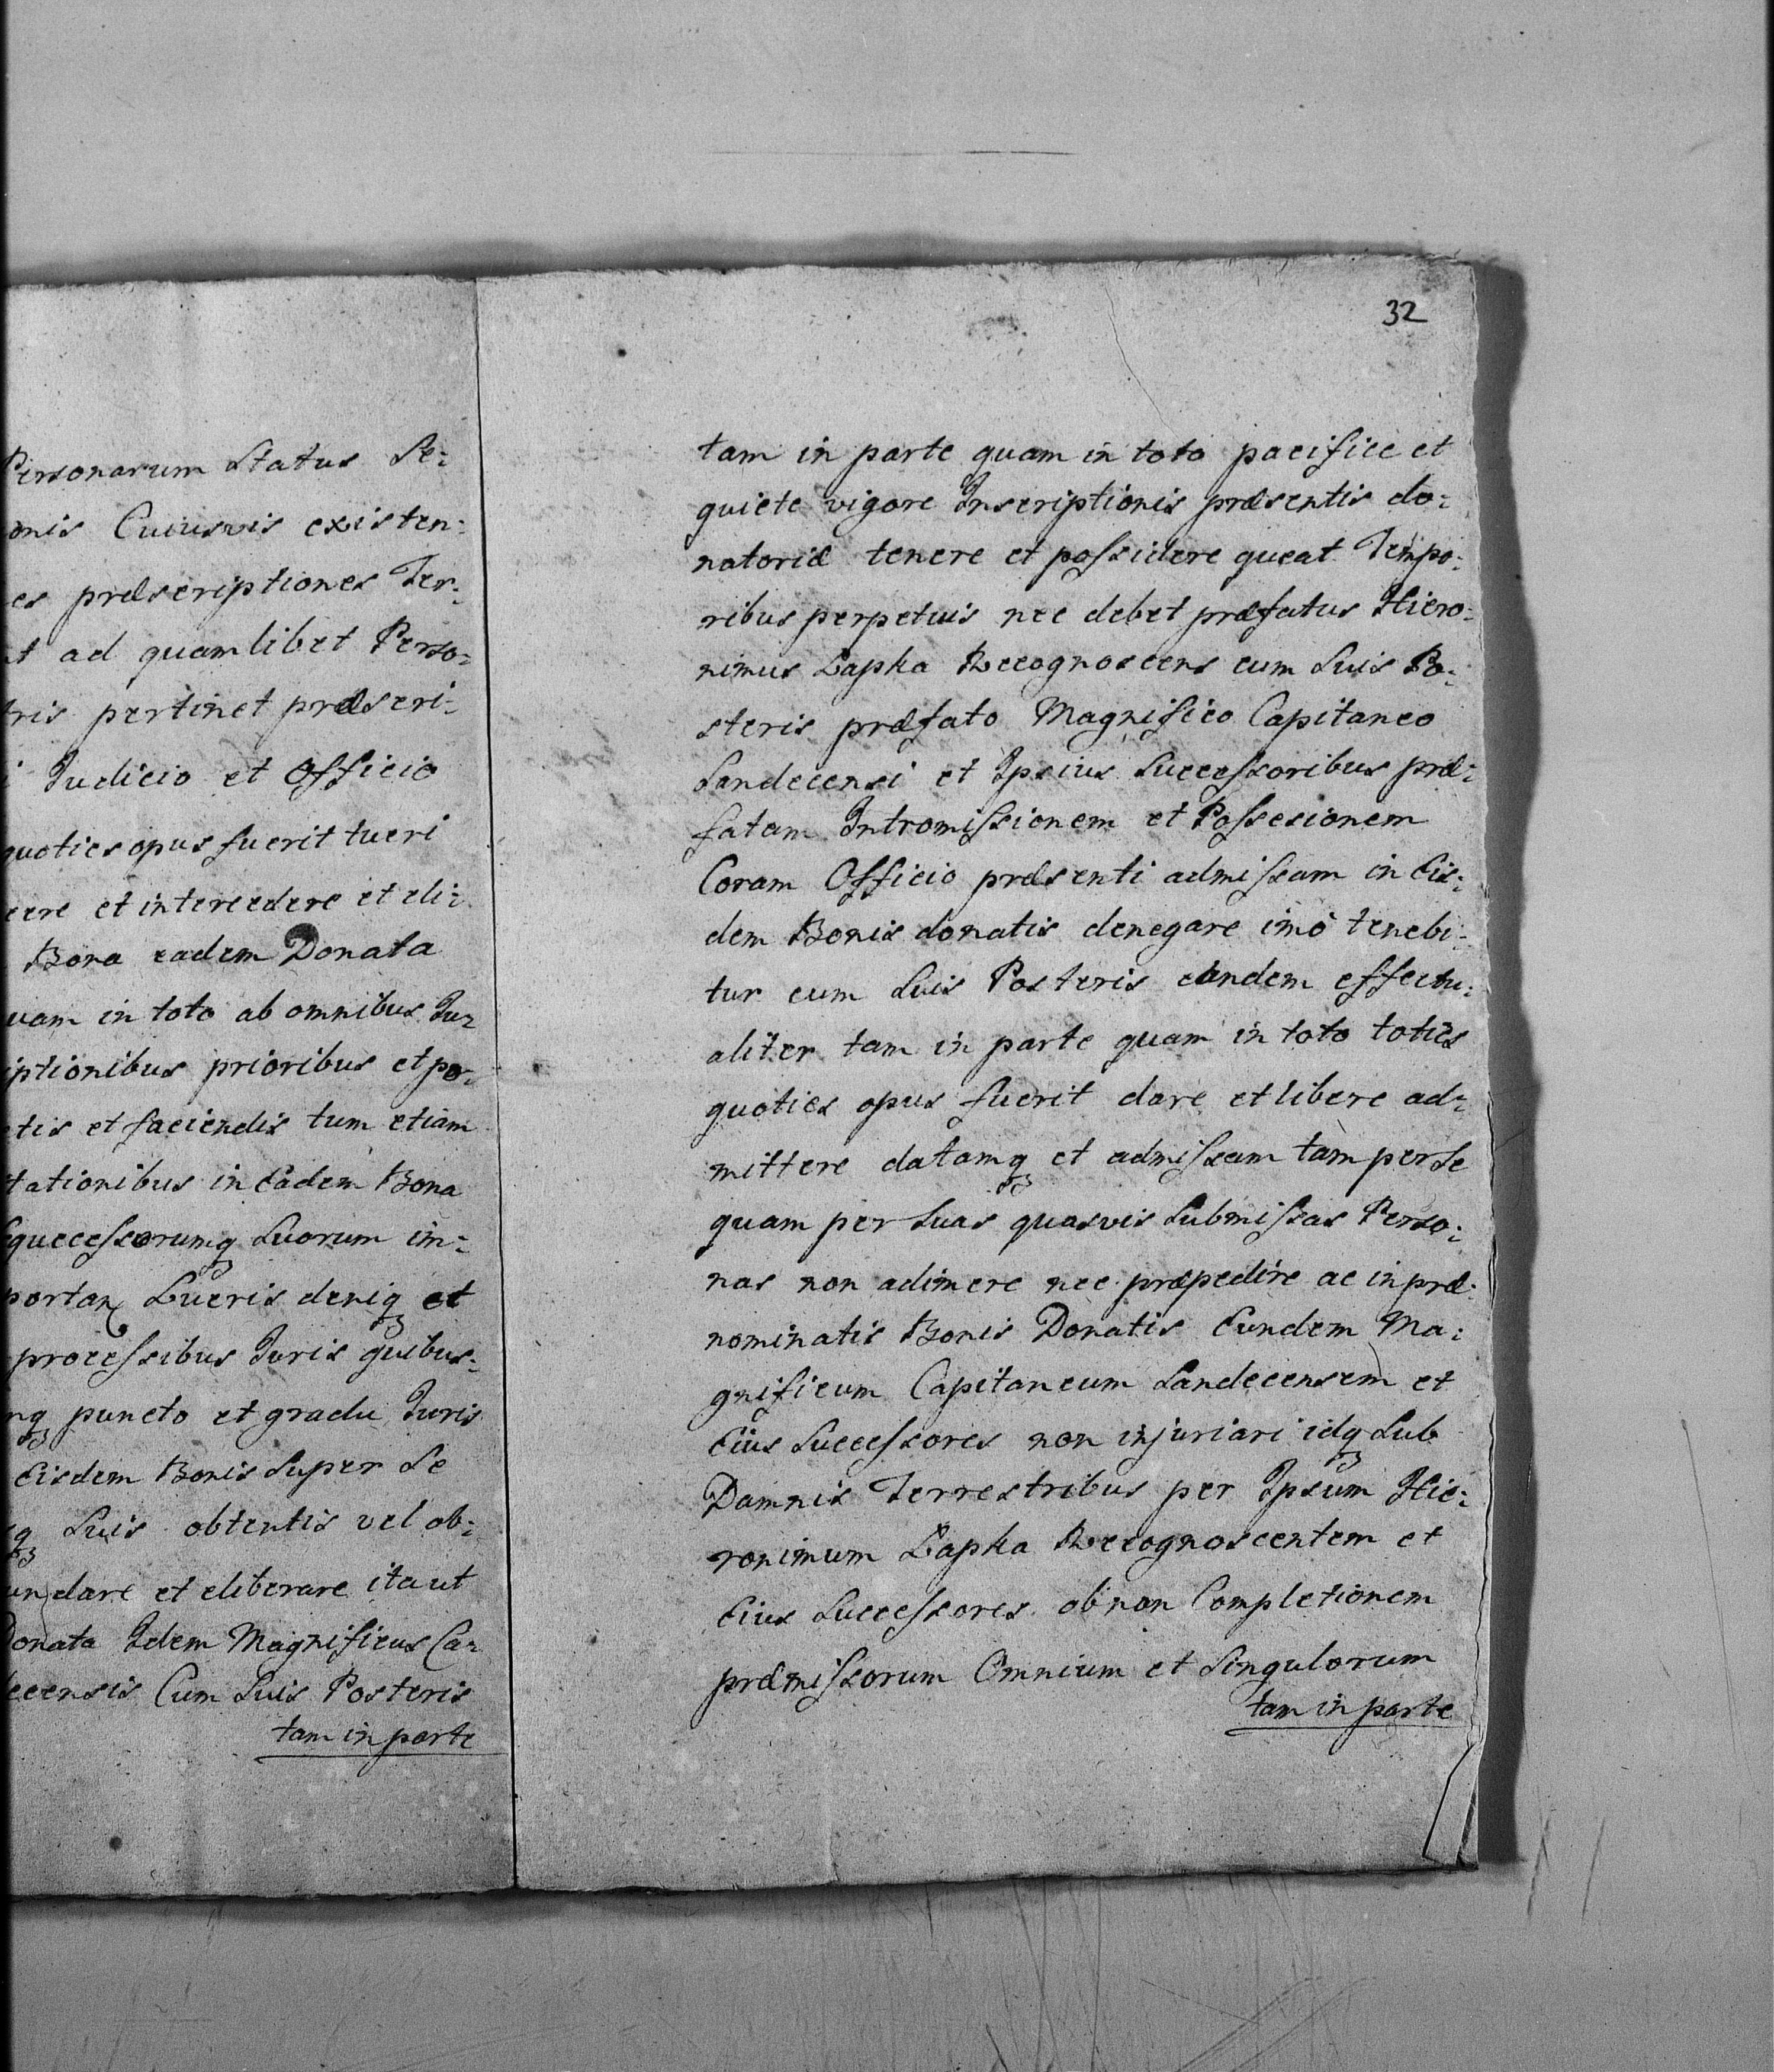 Personarum Status Se:
onis Cuiusvis existen:
es præscriptiones Ter:
t ad quamlibet Perso:
tris pertinet præscri:
i Judicio et Officio
quoties opus fuerit tueri
cere et intercedere et eli:
Bona eadem Donata
uam in toto ab omnibus Ju:
iptionibus prioribus et po:
tis et faciendis tum etiam
tationibus in Eadem Bona
Squccessorumq₃ Suorum im:
portan Lucris deniq₃ et
processibus Juris quibus:
nq₃ puncto et gradu Juris
Eisdem Bonis Super Se
sq₃ Suis obtentis vel ob:
undare et eliberare ita ut
Donata Idem Magnificus Ca:
decensis Cum Suis Posteris
tam in parte
32
tam in parte quam in toto pacifice et
quiete vigore Inscriptionis præsentis do:
natoriæ tenere et possidere queat Tempo:
ribus perpetuis nec debet præfatus Hiero:
nimus Łapka Recognoscens cum Suis Po:
steris præfato Magnifico Capitaneo
Sandecensi et Ipsius Successoribus præ:
fatam Intromissionem et Possesionem
Coram Officio præsenti admissam in Eis:
dem Bonis donatis denegare imò tenebi:
tur cum Suis Posteris eandem effectu:
aliter tam in parte quam in toto toties
quoties opus fuerit dare et libere ad:
mittere datamq₃ et admissam tam per Se
quam per Suas quasvis Submissas Perso:
nas non adimere nec præpedire ac in præ:
nominatis Bonis Donatis Eundem Ma:
gnificum Capitaneum Sandecensem et
Eius Successores non injuriari idq₃ Sub
Damnis Terrestribus per Ipsum Hie:
ronimum Łapka Recognoscentem et
Eius Successores ob non Completionem
præmissorum Omnium et Singulorum
tam in parte